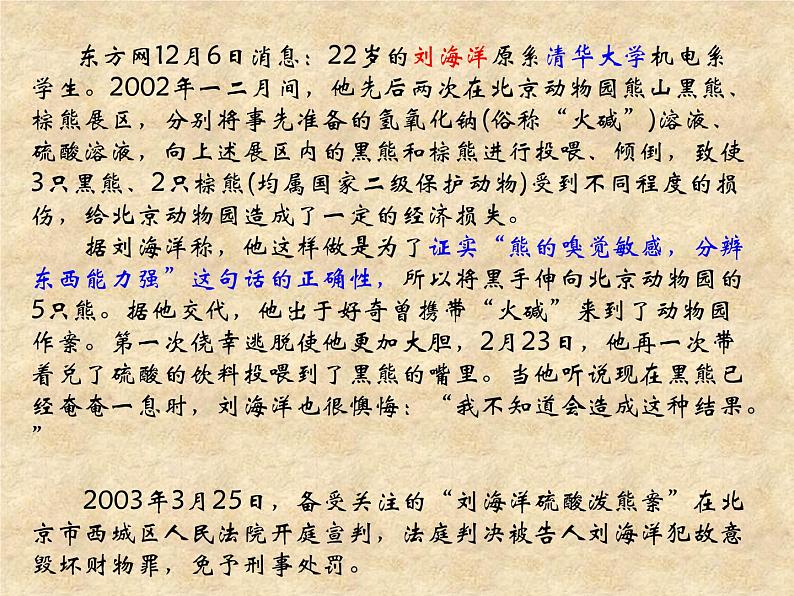 东方网12月6日消息：22岁的刘海洋原系清华大学机电系
学生。2002年一二月间，他先后两次在北京动物园熊山黑熊、
棕熊展区，分别将事先准备的氢氧化钠(俗称“火碱”)溶液、
硫酸溶液，向上述展区内的黑熊和棕熊进行投喂、倾倒，致使
3只黑熊、2只棕熊(均属国家二级保护动物)受到不同程度的损
伤，给北京动物园造成了一定的经济损失。
据刘海洋称，他这样做是为了证实“熊的嗅觉敏感，分辨
东西能力强”这句话的正确性，所以将黑手伸向北京动物园的
5只熊。据他交代，他出于好奇曾携带“火碱”来到了动物园
作案。第一次侥幸逃脱使他更加大胆，2月23日，他再一次带
着兑了硫酸的饮料投喂到了黑熊的嘴里。当他听说现在黑熊已
经奄奄一息时，刘海洋也很懊悔：“我不知道会造成这种结果。
”
2003年3月25日，备受关注的“刘海洋硫酸泼熊案”在北
京市西城区人民法院开庭宣判，法庭判决被告人刘海洋犯故意
毁坏财物罪，免予刑事处罚。